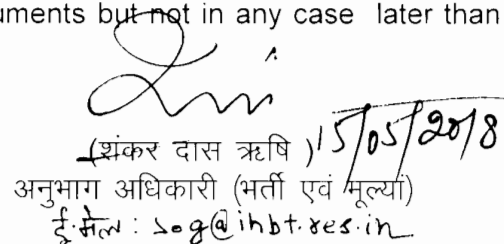 uments but not in any case later than
(शंकर दास ऋषि) 15/05/2018
अनुभाग अधिकारी (भर्ती एवं मूल्यां)
ई.मेल : sog@ihbt.res.in